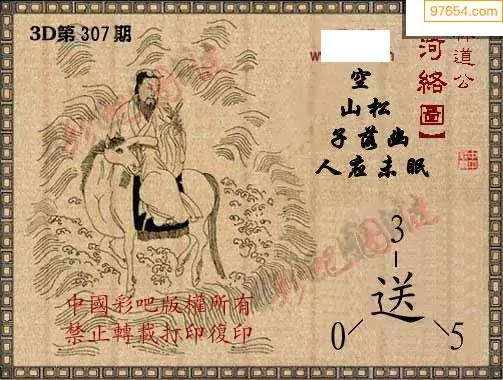 97654.com
3D第307期
道公
河络圖】
空
山松
子落幽
人应未眠
彩吧图谜
彩吧图谜
3
送
0 5
中國彩吧版權所有
禁止轉載打印復印